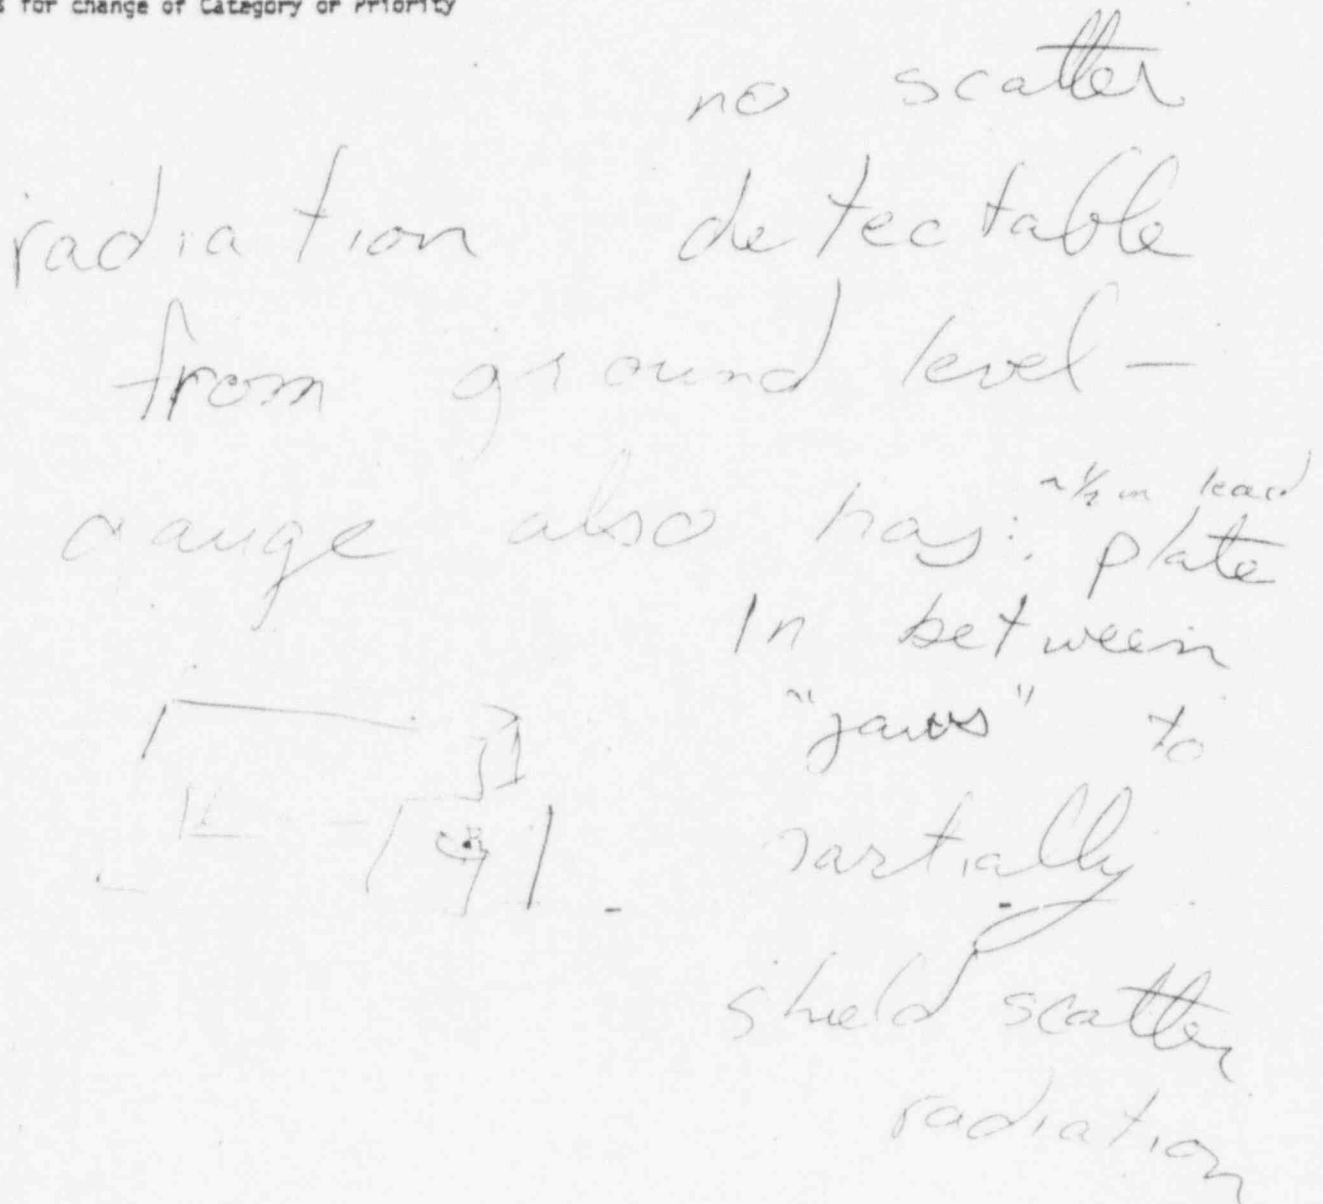 s for change of Category or Priority
no scatter
radiation detectable
from ground level –
gauge also has: ~½ in lead
plate
In between
"jaws" to
partially
shield scatter
radiation